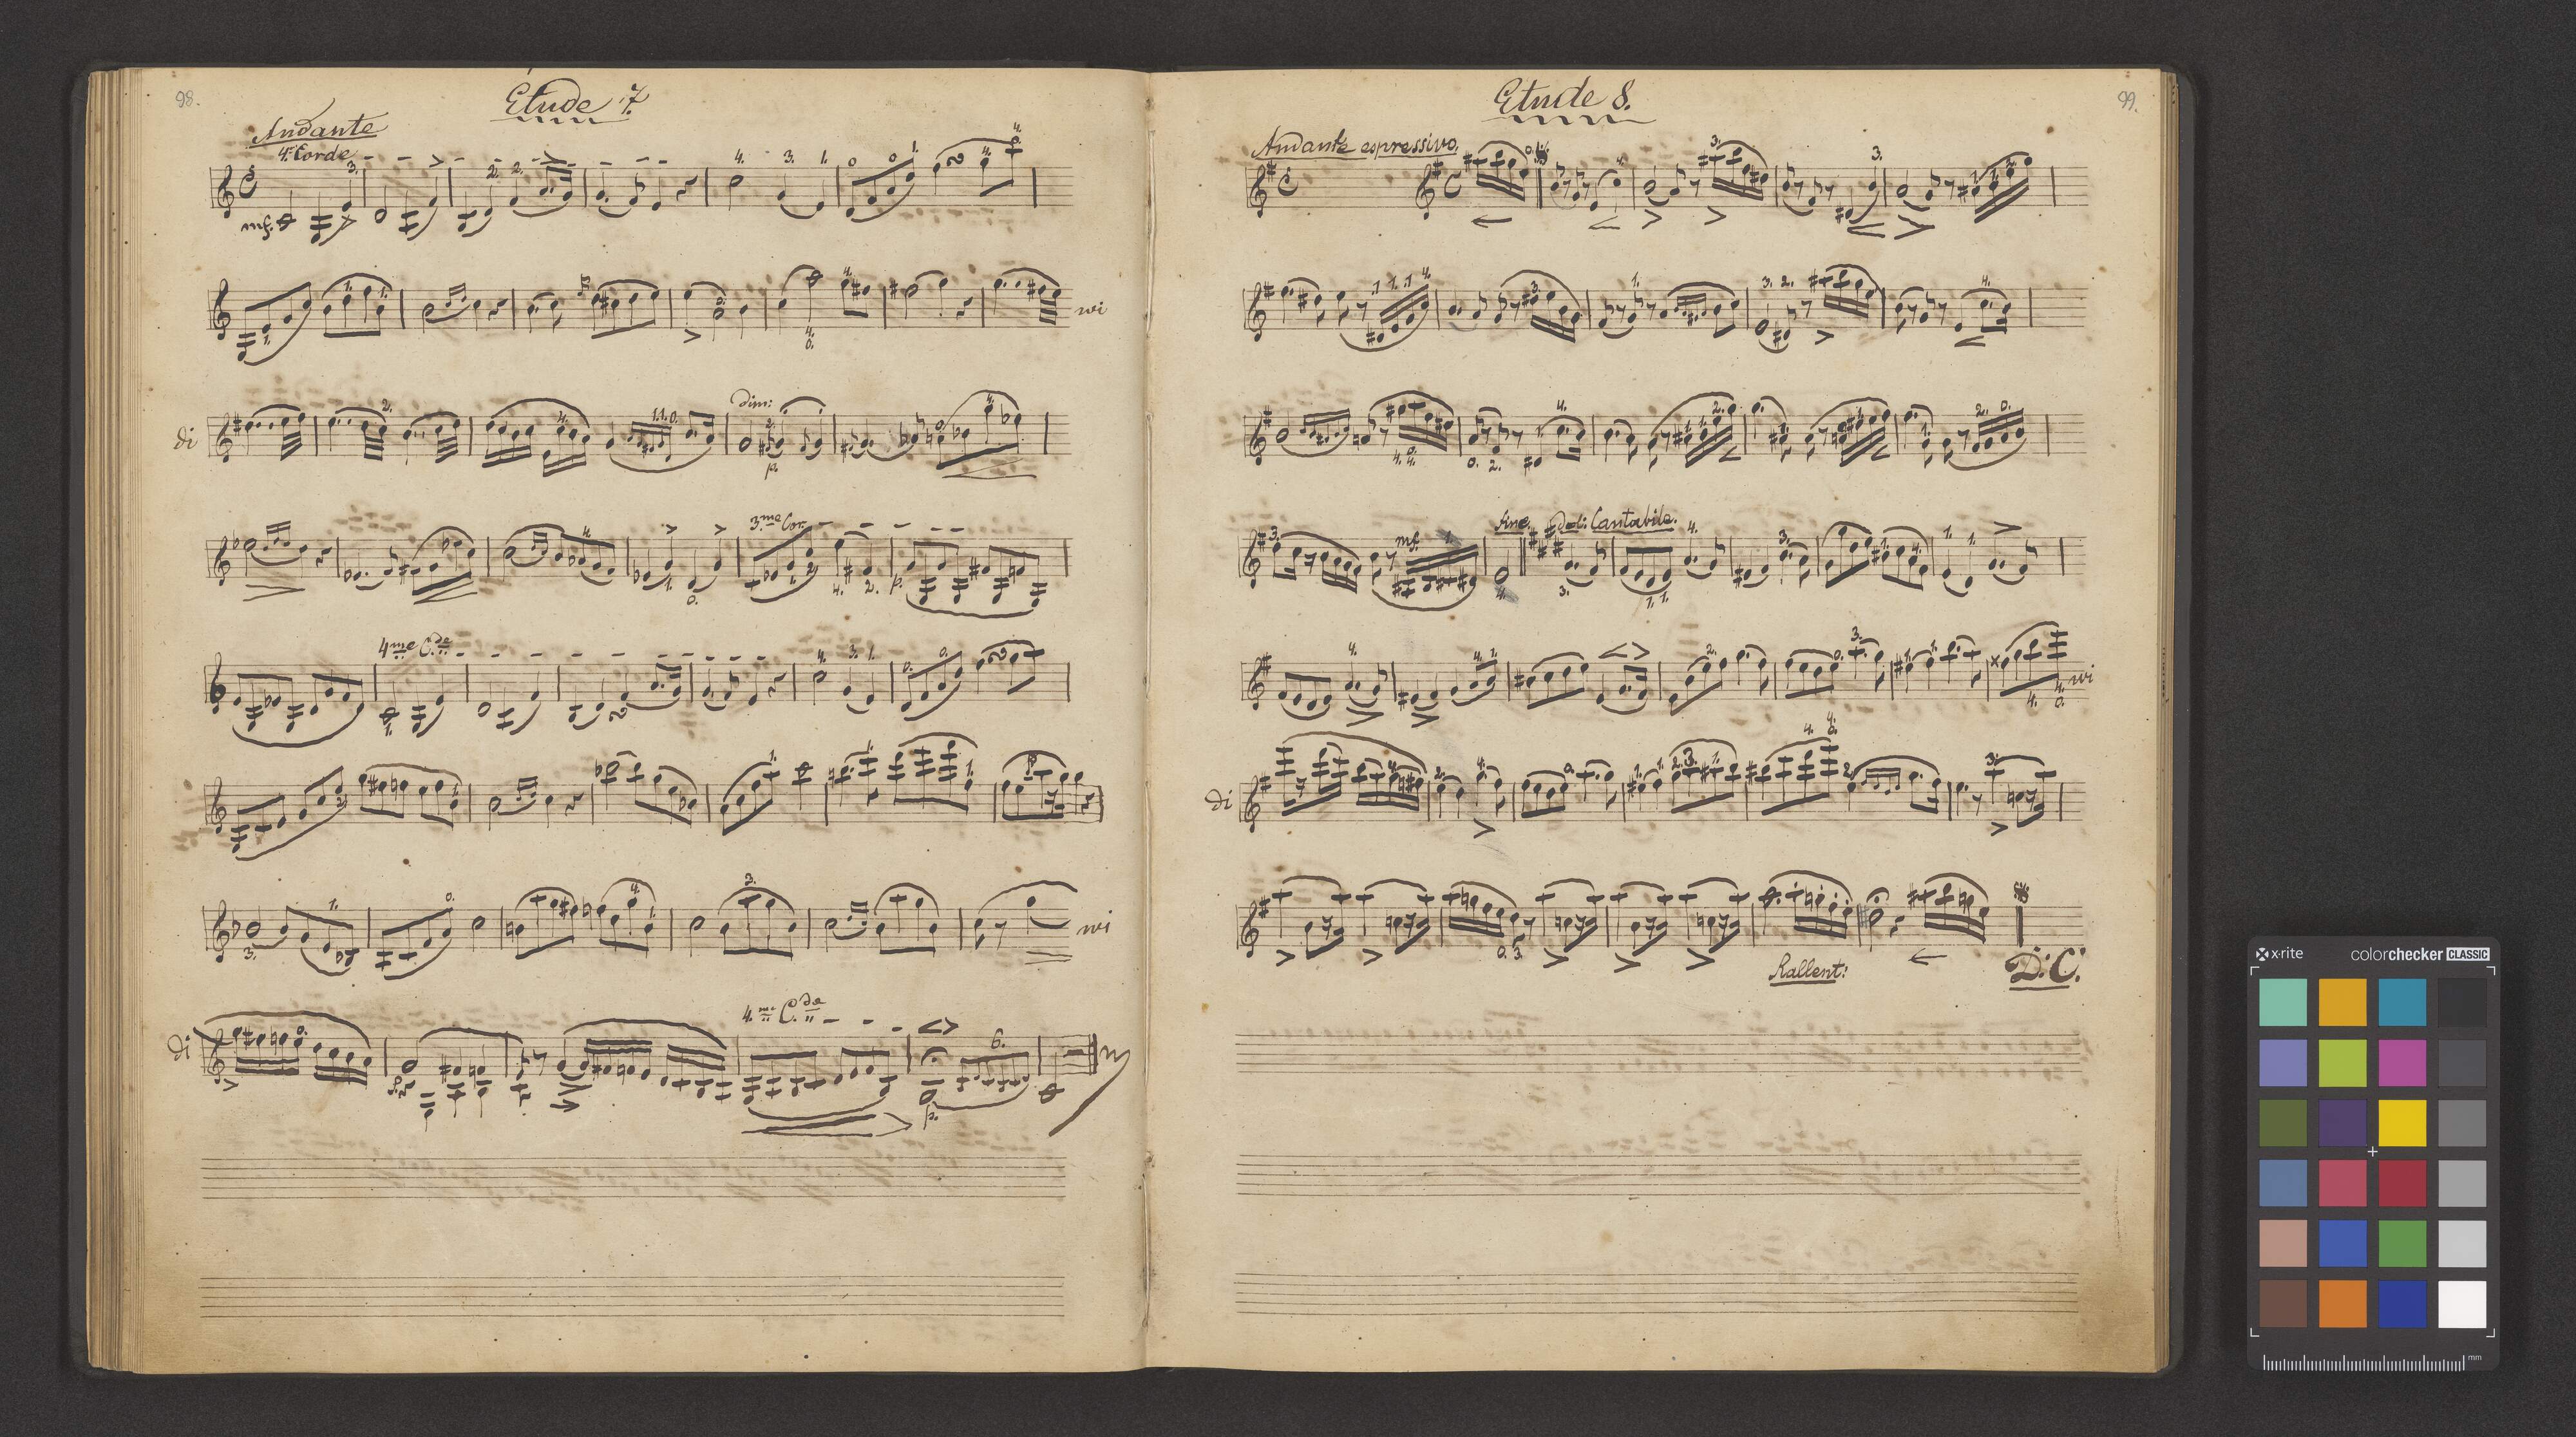 98.
Étude 7.
Andante
4.e Corde
mf.
wi
di
dim:
p.
3.me Cor.
p.
4me C.de
wi
di
4.me C.de
6.
p.
99.
Etude 8.
Andante espressivo.
mf.
fine. dol: Cantabile.
wi
di
Rallent:
D.C.
x-rite
colorchecker CLASSIC
mm